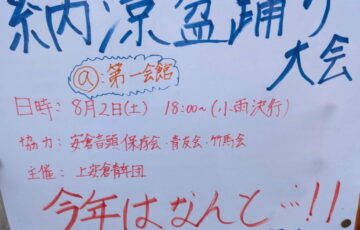 納涼盆踊り
大会
@:第一会館
日時: 8月2日(土) 18:00~(小雨決行)
協力: 安倉音頭保存会・青友会・竹馬会
主催: 上安倉青年団
今年はなんと…!!